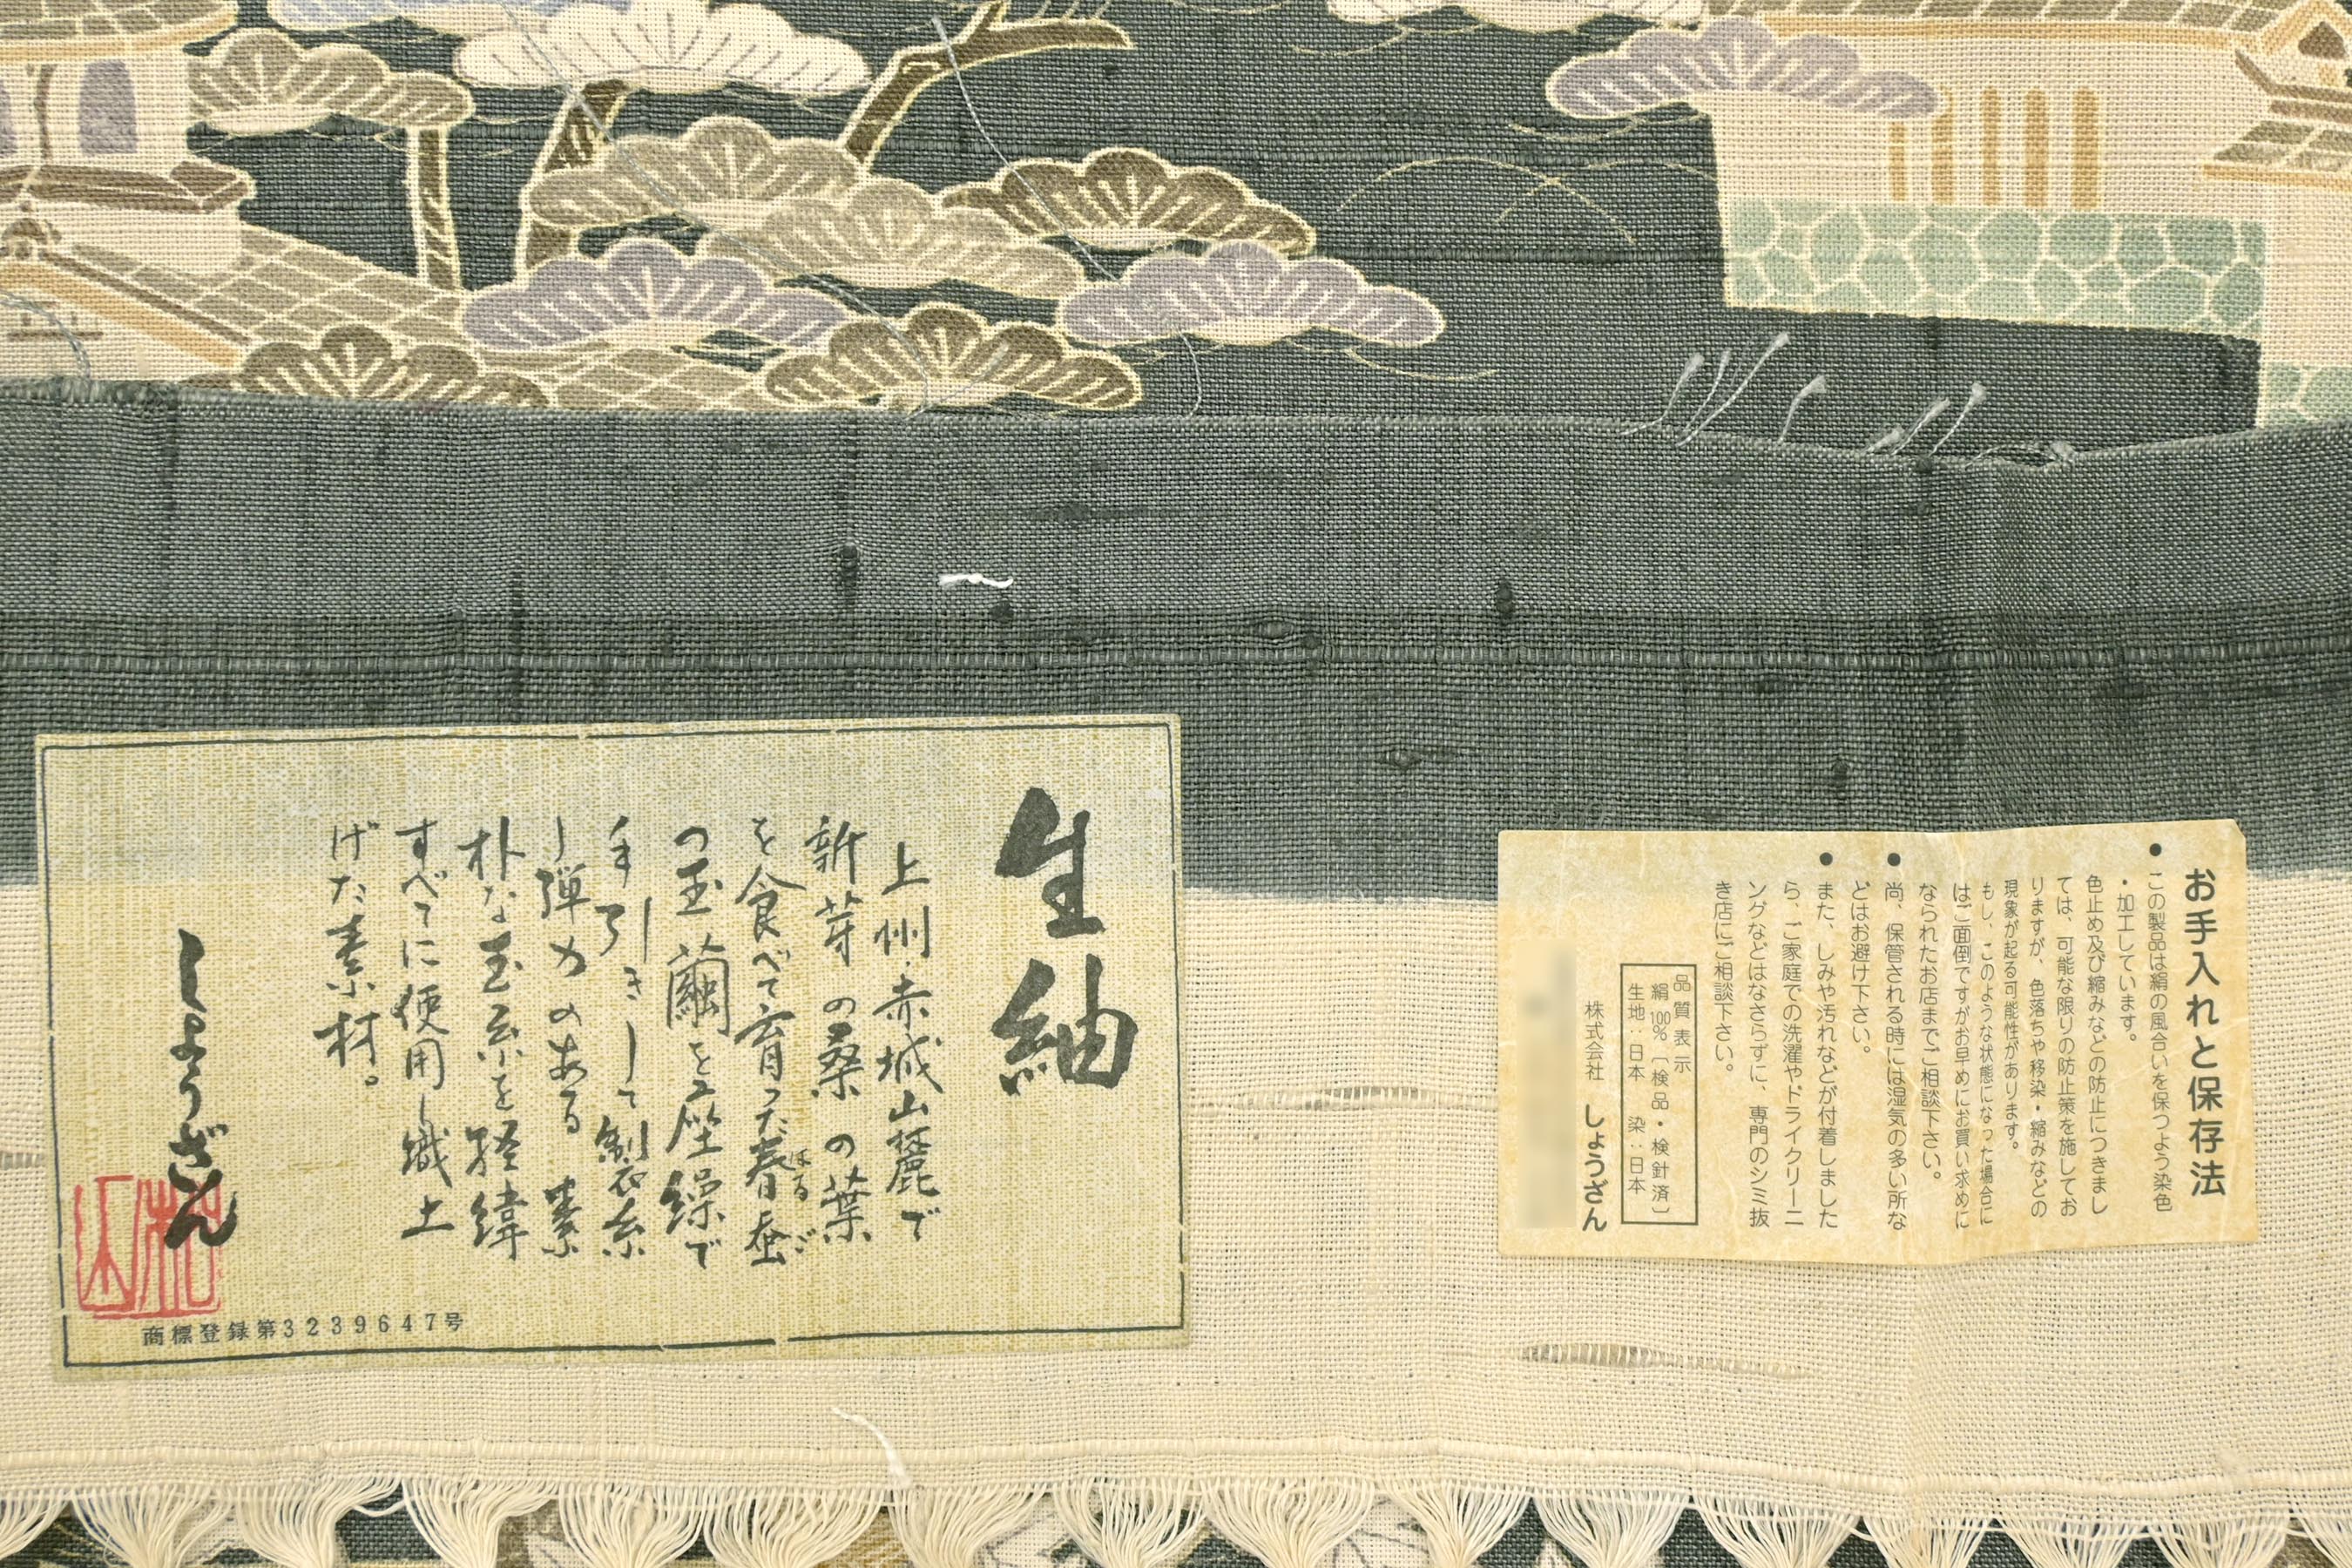 生紬
上州・赤城山麓で
新芽の桑の葉
を食べて育った春蚕
はるご
の玉繭を座繰で
手引きして製糸
し弾力のある素
朴な玉糸を経緯
すべてに使用し織上
げた素材。
しょうざん
商標登録第3239647号
お手入れと保存法
●この製品は絹の風合いを保つよう染色
・加工しています。
色止め及び縮みなどの防止につきまし
ては、可能な限りの防止策を施してお
りますが、色落ちや移染・縮みなどの
現象が起る可能性があります。
もし、このような状態になった場合に
はご面倒ですがお早めにお買い求めに
なられたお店までご相談下さい。
●尚、保管される時には湿気の多い所な
どはお避け下さい。
●また、しみや汚れなどが付着しました
ら、ご家庭での洗濯やドライクリーニ
ングなどはなさらずに、専門のシミ抜
き店にご相談下さい。
品質表示
絹100%〔検品・検針済〕
生地:日本 染:日本
株式会社 しょうざん